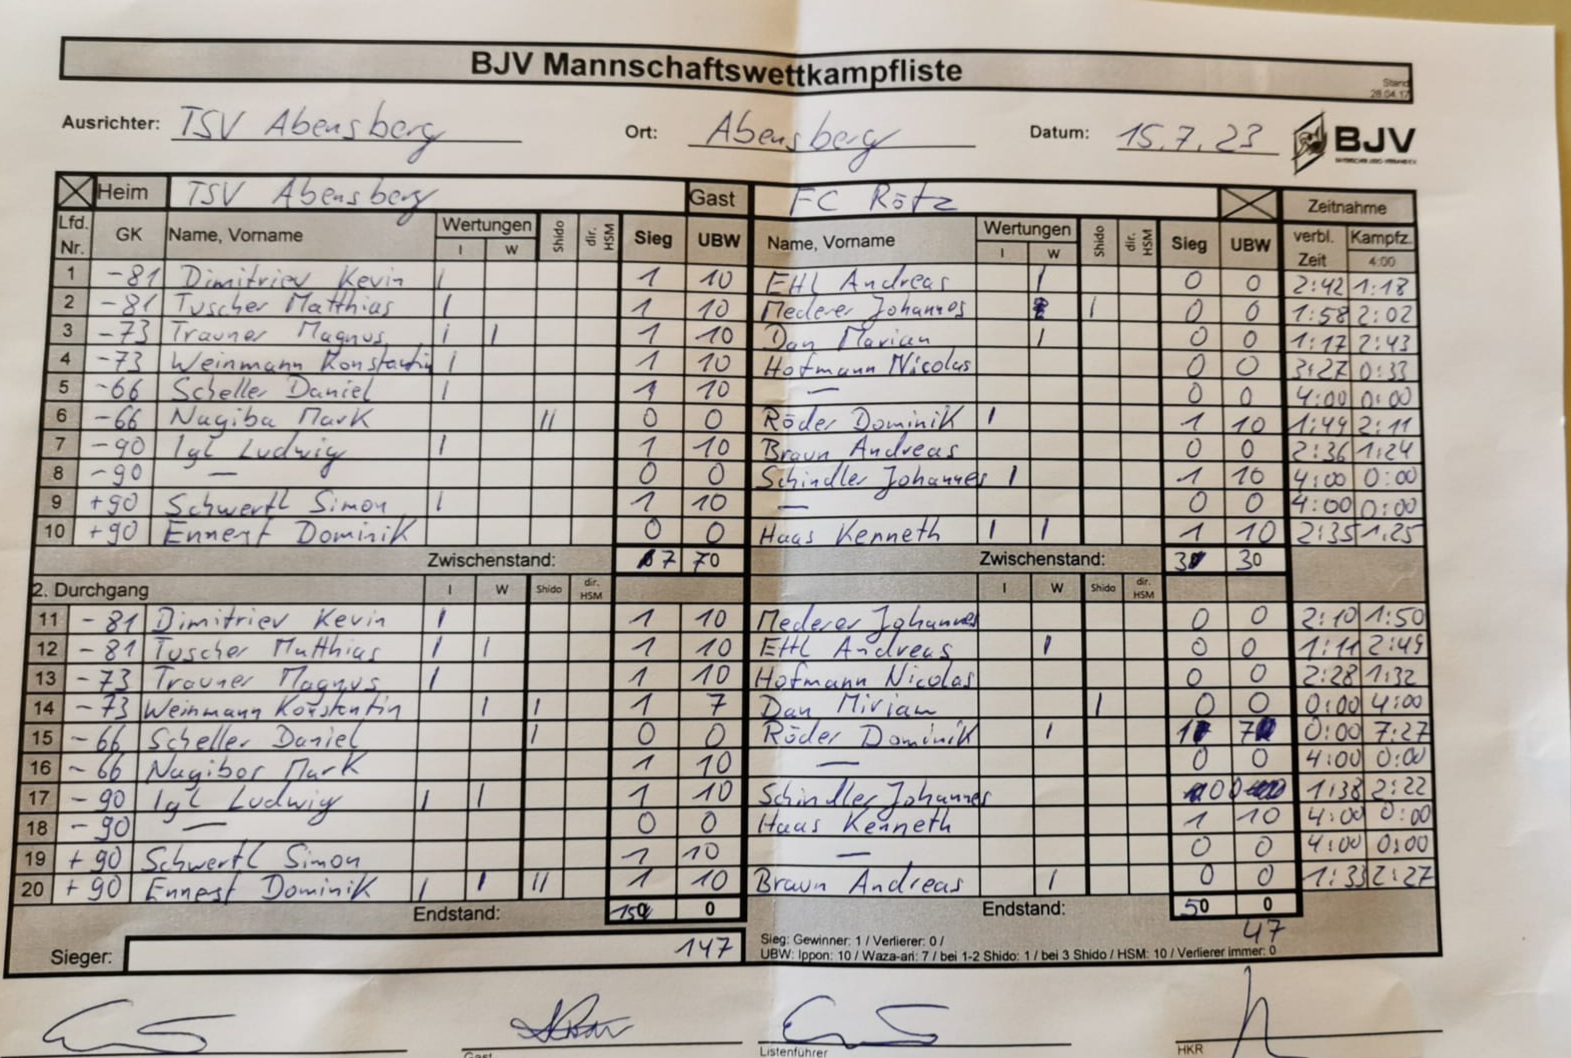 BJV Mannschaftswettkampfliste
Stand
28.04.17
Ausrichter: TSV Abensberg Ort: Abensberg Datum: 15.7.23 BJV
Heim TSV Abensberg Gast FC Rötz Zeitnahme
Lfd. Nr. GK Name, Vorname Wertungen I W Shido dir. HSM Sieg UBW Name, Vorname Wertungen I W Shido dir. HSM Sieg UBW verbl. Zeit Kampfz. 4:00
1 -81 Dimitriev Kevin I 1 10 Ehl Andreas I 0 0 2:42 1:18
2 -81 Tuscher Matthias I 1 10 Mederer Johannes I 0 0 1:58 2:02
3 -73 Trauner Magnus I I 1 10 Dan Marian I 0 0 1:17 2:43
4 -73 Weinmann Konstantin I 1 10 Hofmann Nicolas 0 0 3:27 0:33
5 -66 Scheller Daniel I 1 10 — 0 0 4:00 0:00
6 -66 Nagiba Mark II 0 0 Röder Dominik I 1 10 1:49 2:11
7 -90 Igl Ludwig I 1 10 Braun Andreas 0 0 2:36 1:24
8 -90 — 0 0 Schindler Johannes I 1 10 4:00 0:00
9 +90 Schwertl Simon I 1 10 — 0 0 4:00 0:00
10 +90 Ennest Dominik 0 0 Haas Kenneth I I 1 10 2:35 1:25
Zwischenstand: 7 70 Zwischenstand: 3 30
2. Durchgang I W Shido dir. HSM I W Shido dir. HSM
11 -81 Dimitriev Kevin I 1 10 Mederer Johannes 0 0 2:10 1:50
12 -81 Tuscher Matthias I I 1 10 Ehl Andreas I 0 0 1:11 2:49
13 -73 Trauner Magnus I 1 10 Hofmann Nicolas 0 0 2:28 1:32
14 -73 Weinmann Konstantin I I 1 7 Dan Miriam I 0 0 0:00 4:00
15 -66 Scheller Daniel I 0 0 Röder Dominik I 1 7 0:00 7:27
16 -66 Nagibor Mark 1 10 — 0 0 4:00 0:00
17 -90 Igl Ludwig I I 1 10 Schindler Johannes 0 0 1:38 2:22
18 -90 — 0 0 Haas Kenneth 1 10 4:00 0:00
19 +90 Schwertl Simon 1 10 — 0 0 4:00 0:00
20 +90 Ennest Dominik I I II 1 10 Braun Andreas I 0 0 1:33 2:27
Endstand: 15 0 Endstand: 5 0
Sieger: 147 47
Sieg: Gewinner: 1 / Verlierer: 0 /
UBW: Ippon: 10 / Waza-ari: 7 / bei 1-2 Shido: 1 / bei 3 Shido / HSM: 10 / Verlierer immer: 0
Gast Listenführer HKR